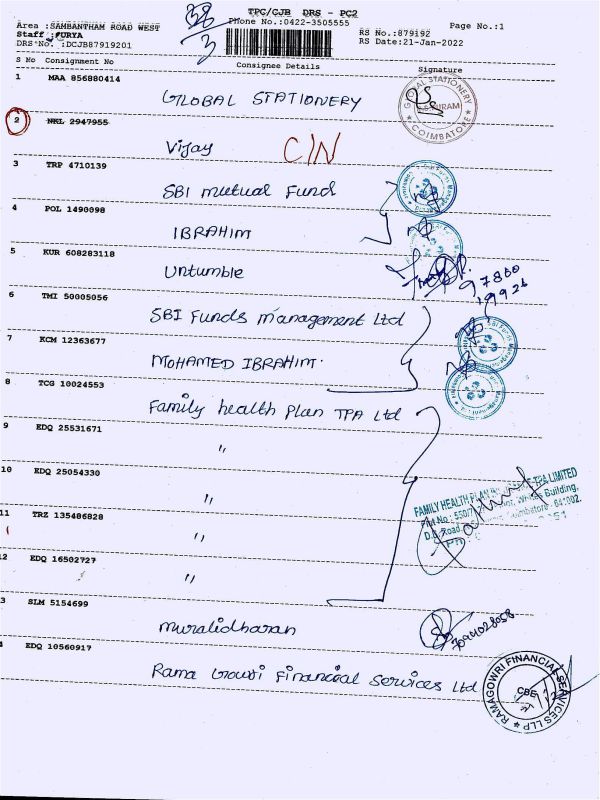 TPC/CJB DRS - PC2
Area :SAMBANTHAM ROAD WEST
Phone No.:0422-3505555
Page No.:1
Staff :SURYA
RS No.:879192
DRS No. :DCJB87919201
RS Date:21-Jan-2022
38
3
S No Consignment No
Consignee Details
Signature
1 MAA 856880414
GLOBAL STATIONERY
GLOBAL STATIONERY
COIMBATORE
2 NKL 2947955
Vijay
C/N
3 TRP 4710139
SBI mutual Fund
4 POL 1490098
IBRAHIM
5 KUR 608283118
Untumble
97860
19926
6 TMI 50005056
SBI Funds management Ltd
7 KCM 12363677
MOHAMED IBRAHIM
8 TCG 10024553
Family health Plan TPA Ltd
9 EDQ 25531671
"
10 EDQ 25054330
"
FAMILY HEALTH PLAN TPA LIMITED
Building,
D.B. Road, Coimbatore - 641002.
11 TRZ 135486828
"
12 EDQ 16502727
"
3 SLM 5154699
muralidharan
4 EDQ 10560917
Rama Gowri Financial Services Ltd
RAMAGOWRI FINANCIAL SERVICES LLP
CBE